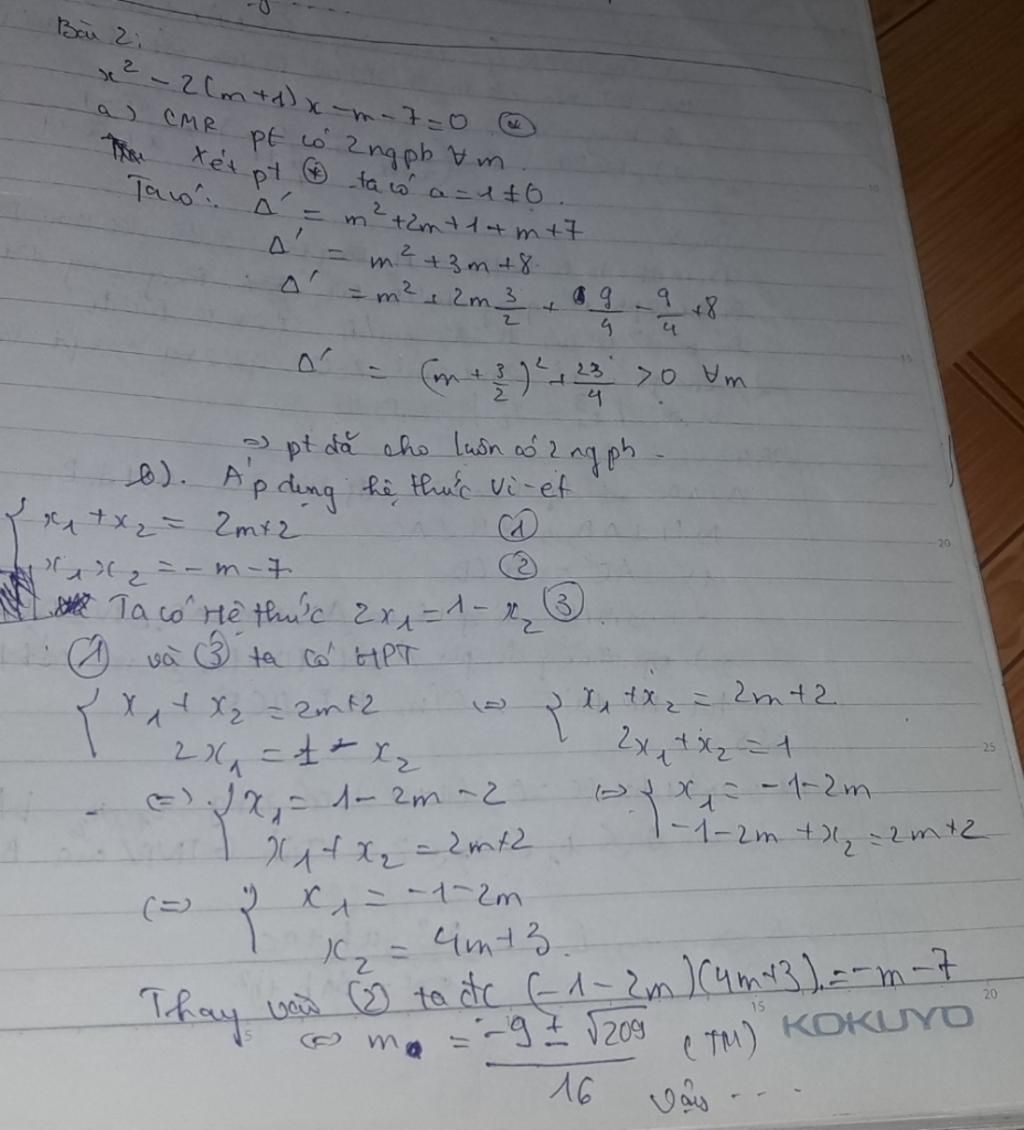 Bài 2:
x² - 2(m+1)x - m - 7 = 0 (*)
a) CMR pt có 2 ngpb ∀m.
Xét pt (*) ta có a = 1 ≠ 0.
Ta có: Δ' = m² + 2m + 1 + m + 7
Δ' = m² + 3m + 8
Δ' = m² + 2m 3/2 + 9/4 - 9/4 + 8
Δ' = (m + 3/2)² + 23/4 > 0 ∀m
=> pt đã cho luôn có 2 ngpb.
b). Áp dụng hệ thức Vi-et
{ x₁ + x₂ = 2m+2 (1)
x₁x₂ = -m-7 (2)
Ta có Hệ thức 2x₁ = 1 - x₂ (3)
(1) và (3) ta có HPT
{ x₁ + x₂ = 2m+2 <=> { x₁ + x₂ = 2m+2
2x₁ = 1 - x₂ 2x₁ + x₂ = 1
<=> { x₁ = 1 - 2m - 2 <=> { x₁ = -1-2m
x₁ + x₂ = 2m+2 -1-2m + x₂ = 2m+2
<=> { x₁ = -1-2m
x₂ = 4m+3.
Thay vào (2) ta đc (-1-2m)(4m+3) = -m-7
<=> m = (-9 ± √209)/16 (TM)
Vậy ...
KOKUYO
10
15
20
25
5
15
20